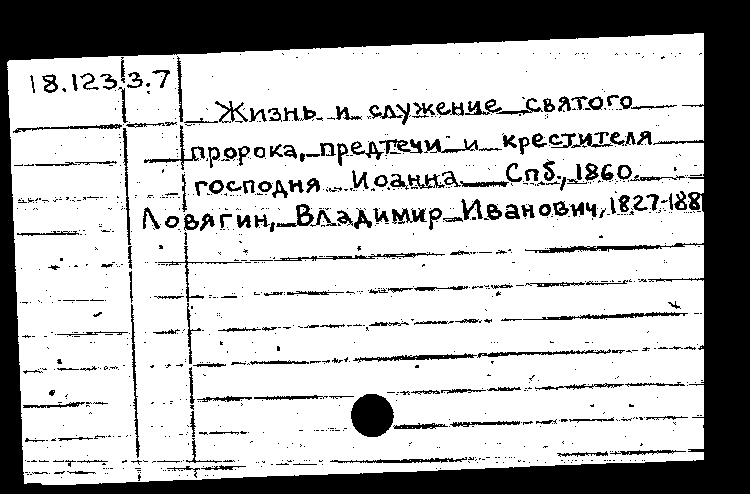 18.123.3.7
Жизнь и служение святого
пророка, предтечи и крестителя
господня Иоанна. Спб., 1860.
Ловягин, Владимир Иванович, 1827-188